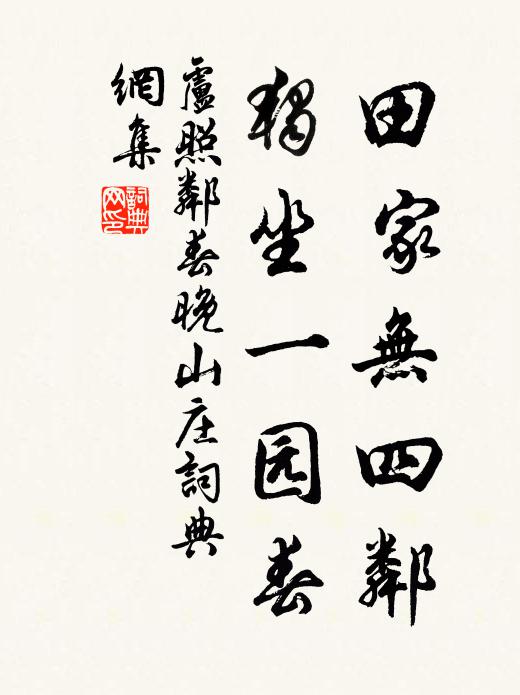 田家無四鄰
獨坐一园春
盧照鄰春晚山庄詞典
網集
詞典
网印